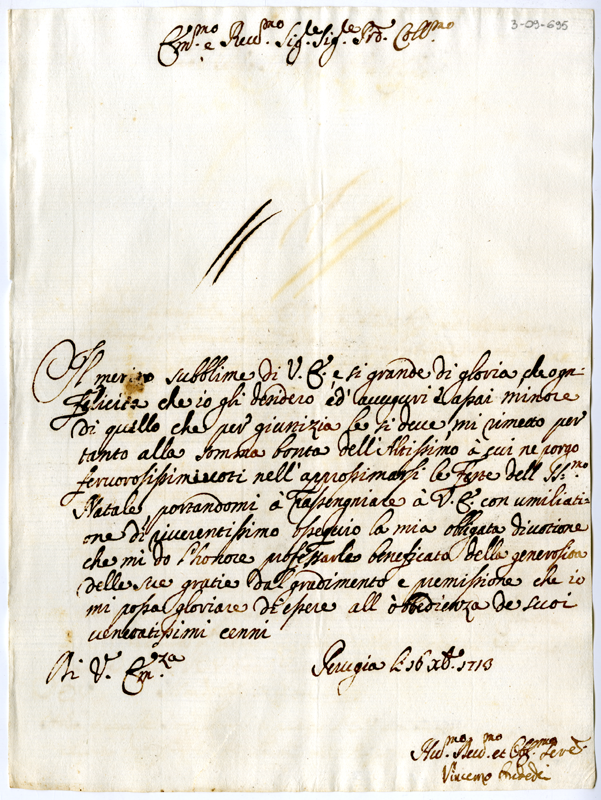 3-09-695
Em.mo e Reu.mo Sig.re Sig.re Pro. Coll.mo
Il merito subblime di V. E. e si grande di gloria che ogni
felicita che io gli desidero ed' auuguri è assai minore
di quello che per giunizia le si deue, mi rimeto per
tanto alla somma bonta dell'Altissimo à cui ne porgo
feruorosissimi uoti nell'approssimarsi le Feste dell SS.mo
Natale portandomi à rassengniale à V. E. con umiliati=
one di riuerentissimo ossequio la mia obligata diuotione
che mi do l'honore professarla beneficata della generosita
delle sue gratie dal gradimento e premissione che io
mi possa gloriare di essere all' obbedienza de suoi
ueneratissimi cenni
Di V. Em.za Perugia li 16 xb. 1713
Hu.mo Reud.mo et Obb.mo Serv.
Vincenzo